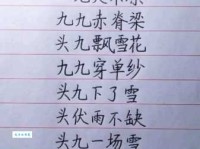 九九赤脊梁
头九飘雪花
九九穿单纱
头九下了雪
头伏雨不缺
头九一场雪